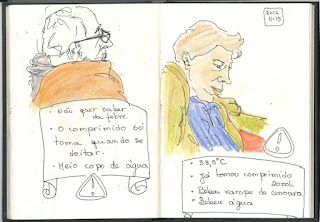 • Não quer saber
da febre
• O comprimido só
toma quando se
deitar.
• Meio copo de água
!
2012
11-15
!
• 38,9°C
• Já tomou comprimido
20:00h
• Bebeu xarope de cenoura
• Bebeu água